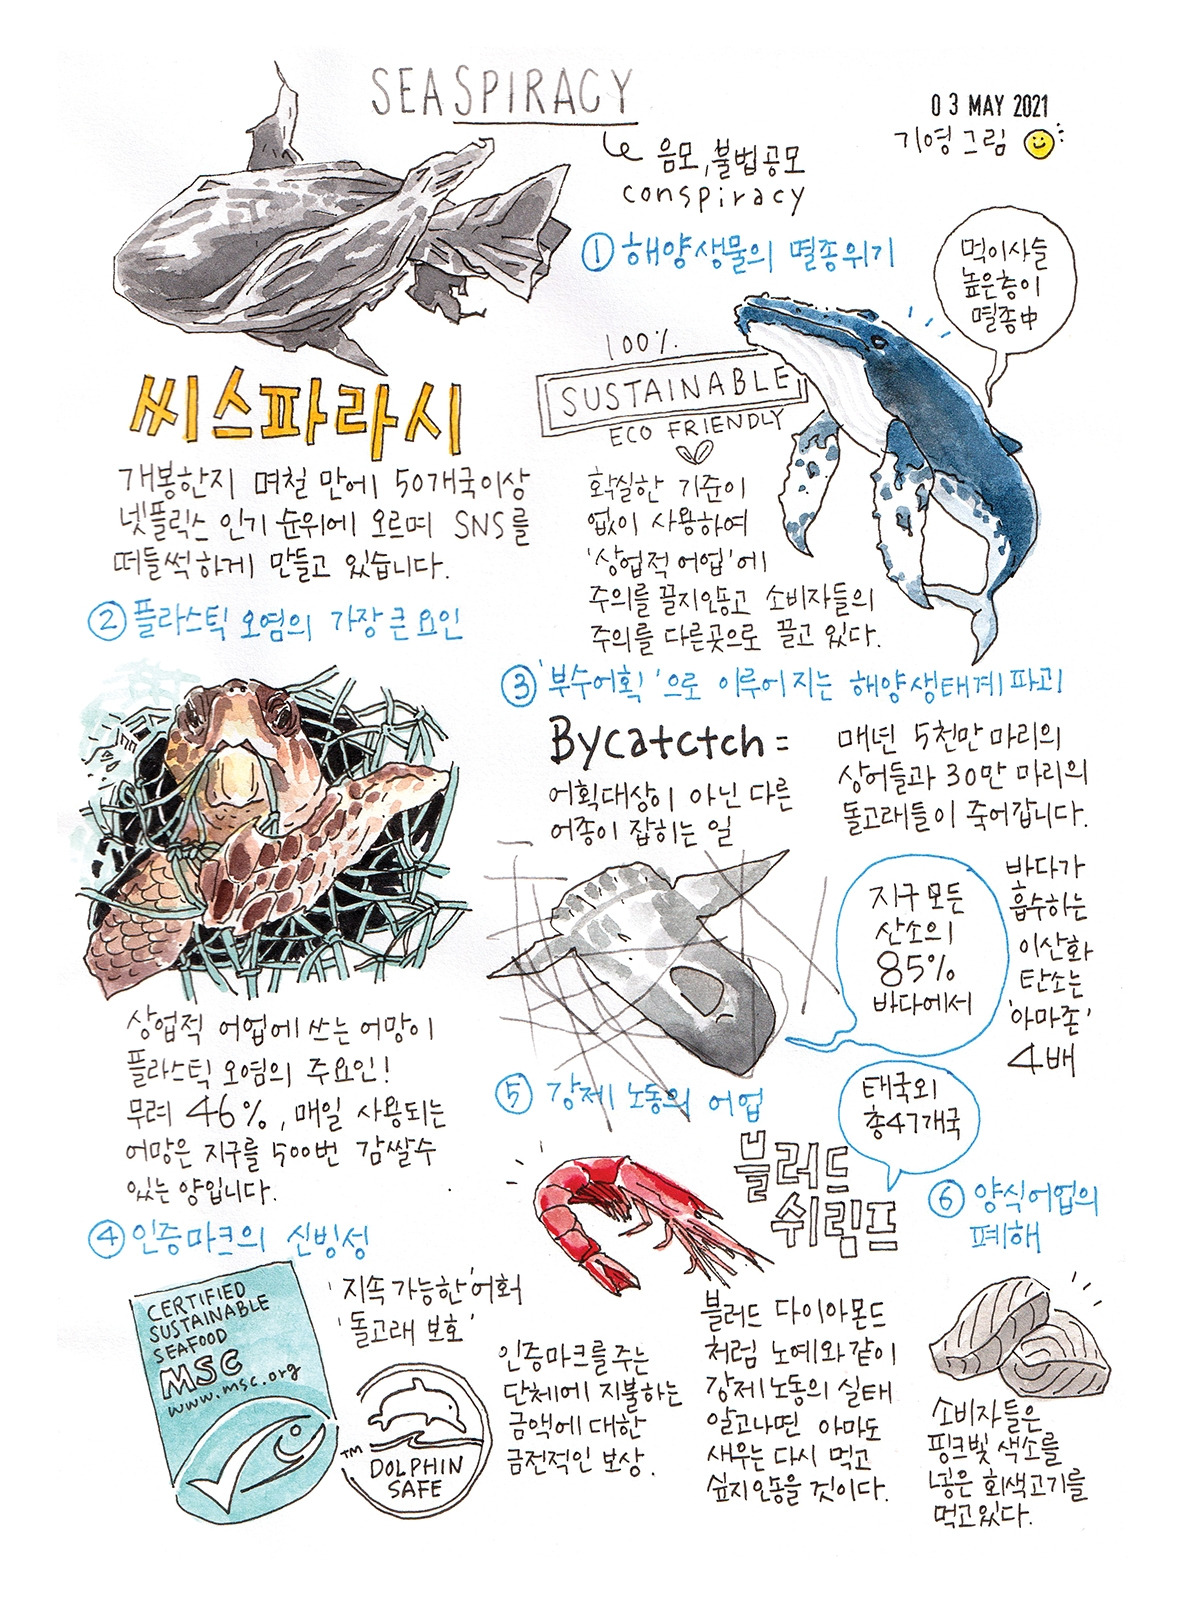 SEASPIRACY
03 MAY 2021
기영 그림
음모, 불법공모
conspiracy
① 해양생물의 멸종위기
먹이사슬
높은층이
멸종中
100%
SUSTAINABLE
ECO FRIENDLY
확실한 기준이
없이 사용하여
'상업적 어업'에
주의를 끌지않고 소비자들의
주의를 다른곳으로 끌고 있다.
씨스파라시
개봉한지 며칠 만에 50개국이상
넷플릭스 인기 순위에 오르며 SNS를
떠들썩하게 만들고 있습니다.
② 플라스틱 오염의 가장 큰 요인
상업적 어업에 쓰는 어망이
플라스틱 오염의 주요인!
무려 46%, 매일 사용되는
어망은 지구를 500번 감쌀수
있는 양입니다.
③ '부수어획'으로 이루어지는 해양생태계파괴
Bycatctch =
어획대상이 아닌 다른
어종이 잡히는 일
매년 5천만 마리의
상어들과 30만 마리의
돌고래들이 죽어갑니다.
지구 모든
산소의
85%
바다에서
바다가
흡수하는
이산화
탄소는
'아마존'
4배
④ 인증마크의 신빙성
CERTIFIED
SUSTAINABLE
SEAFOOD
MSC
www.msc.org
TM
'지속 가능한'어획
'돌고래 보호'
DOLPHIN
SAFE
인증마크를 주는
단체에 지불하는
금액에 대한
금전적인 보상.
⑤ 강제 노동의 어업
태국외
총47개국
블러드
쉬림프
블러드 다이아몬드
처럼 노예와 같이
강제노동의 실태
알고나면 아마도
새우는 다시 먹고
싶지않을 것이다.
⑥ 양식어업의
폐해
소비자들은
핑크빛 색소를
넣은 회색고기를
먹고있다.